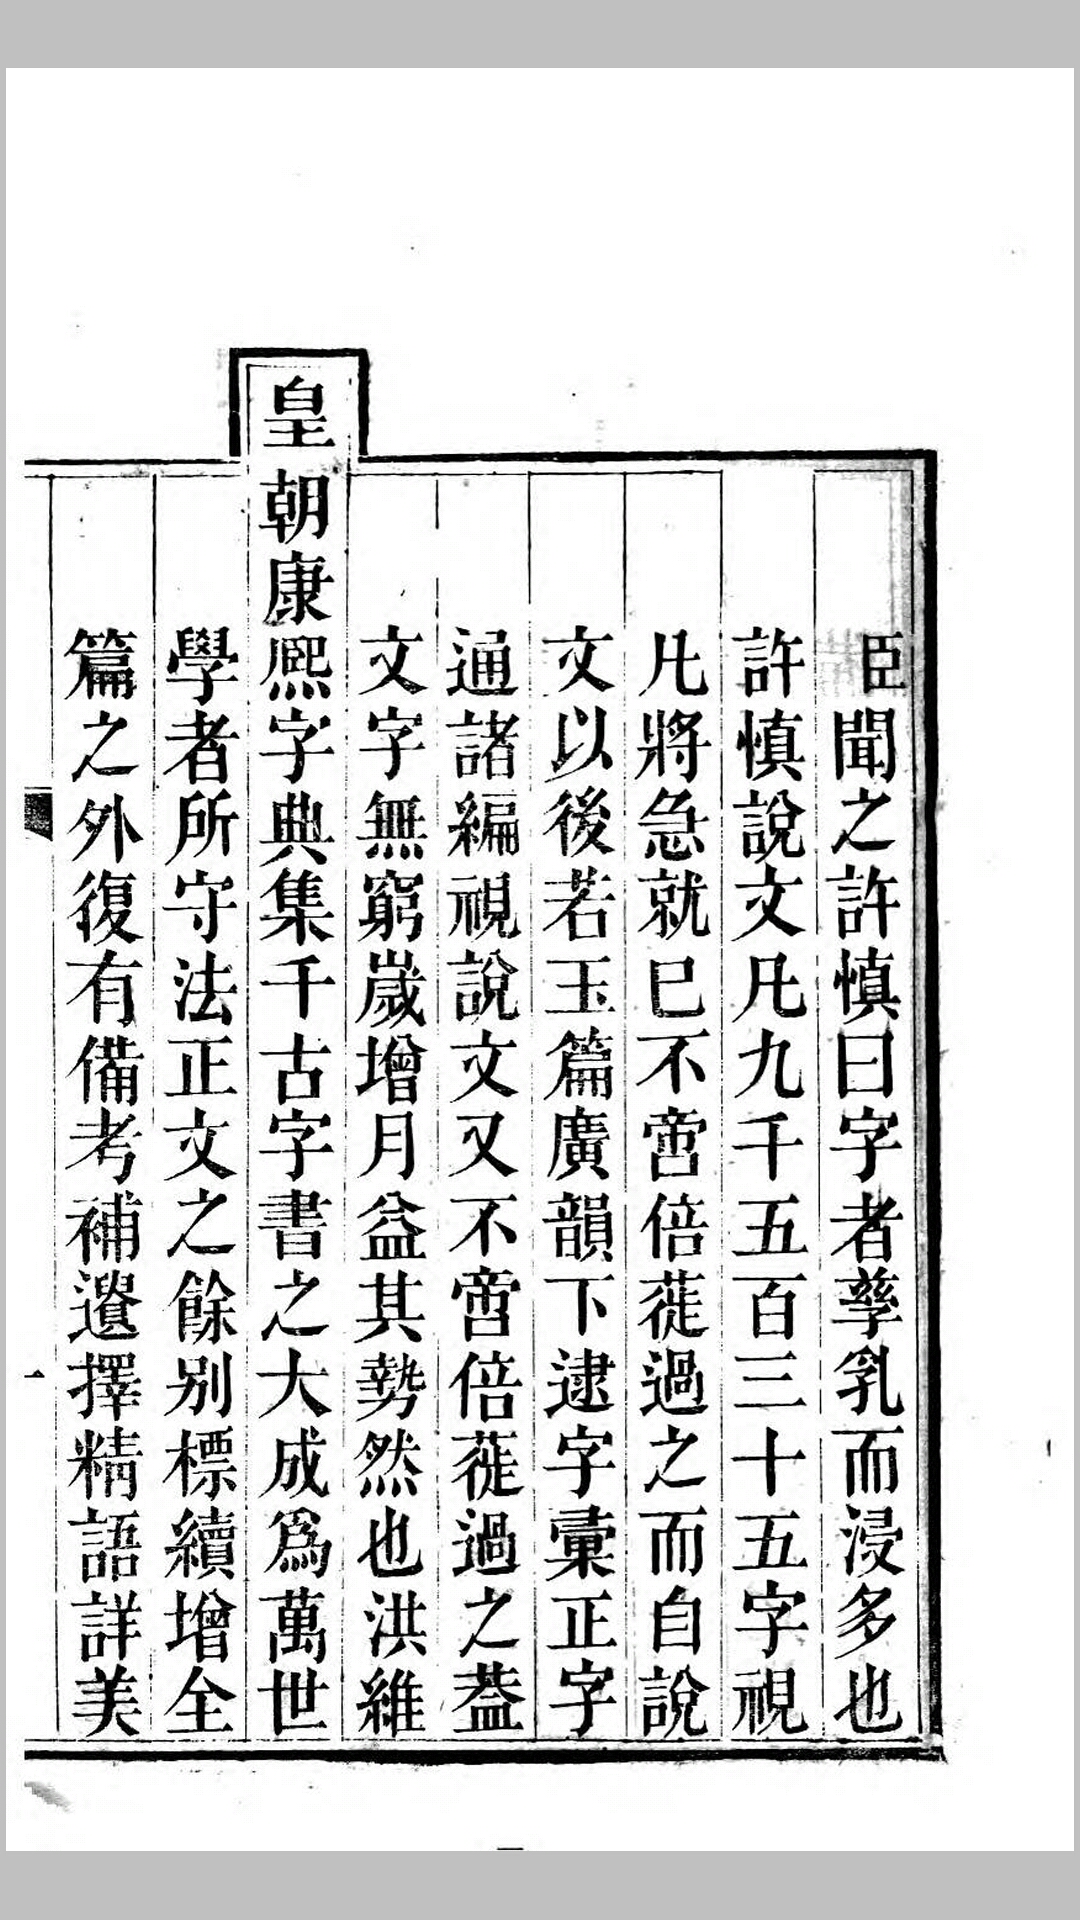 臣聞之許慎曰字者孳乳而浸多也
許慎說文凡九千五百三十五字視
凡將急就已不啻倍蓰過之而自說
文以後若玉篇廣韻下逮字彙正字
通諸編視說文又不啻倍蓰過之葢
文字無窮歲增月益其勢然也洪維
皇朝康熙字典集千古字書之大成爲萬世
學者所守法正文之餘別標續增全
篇之外復有備考補遺擇精語詳美
一